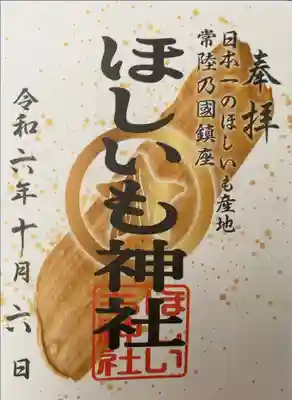 奉拝
日本一のほしいも産地
常陸乃國鎮座
ほしいも神社
ほしい
も神
社
令和六年十月六日